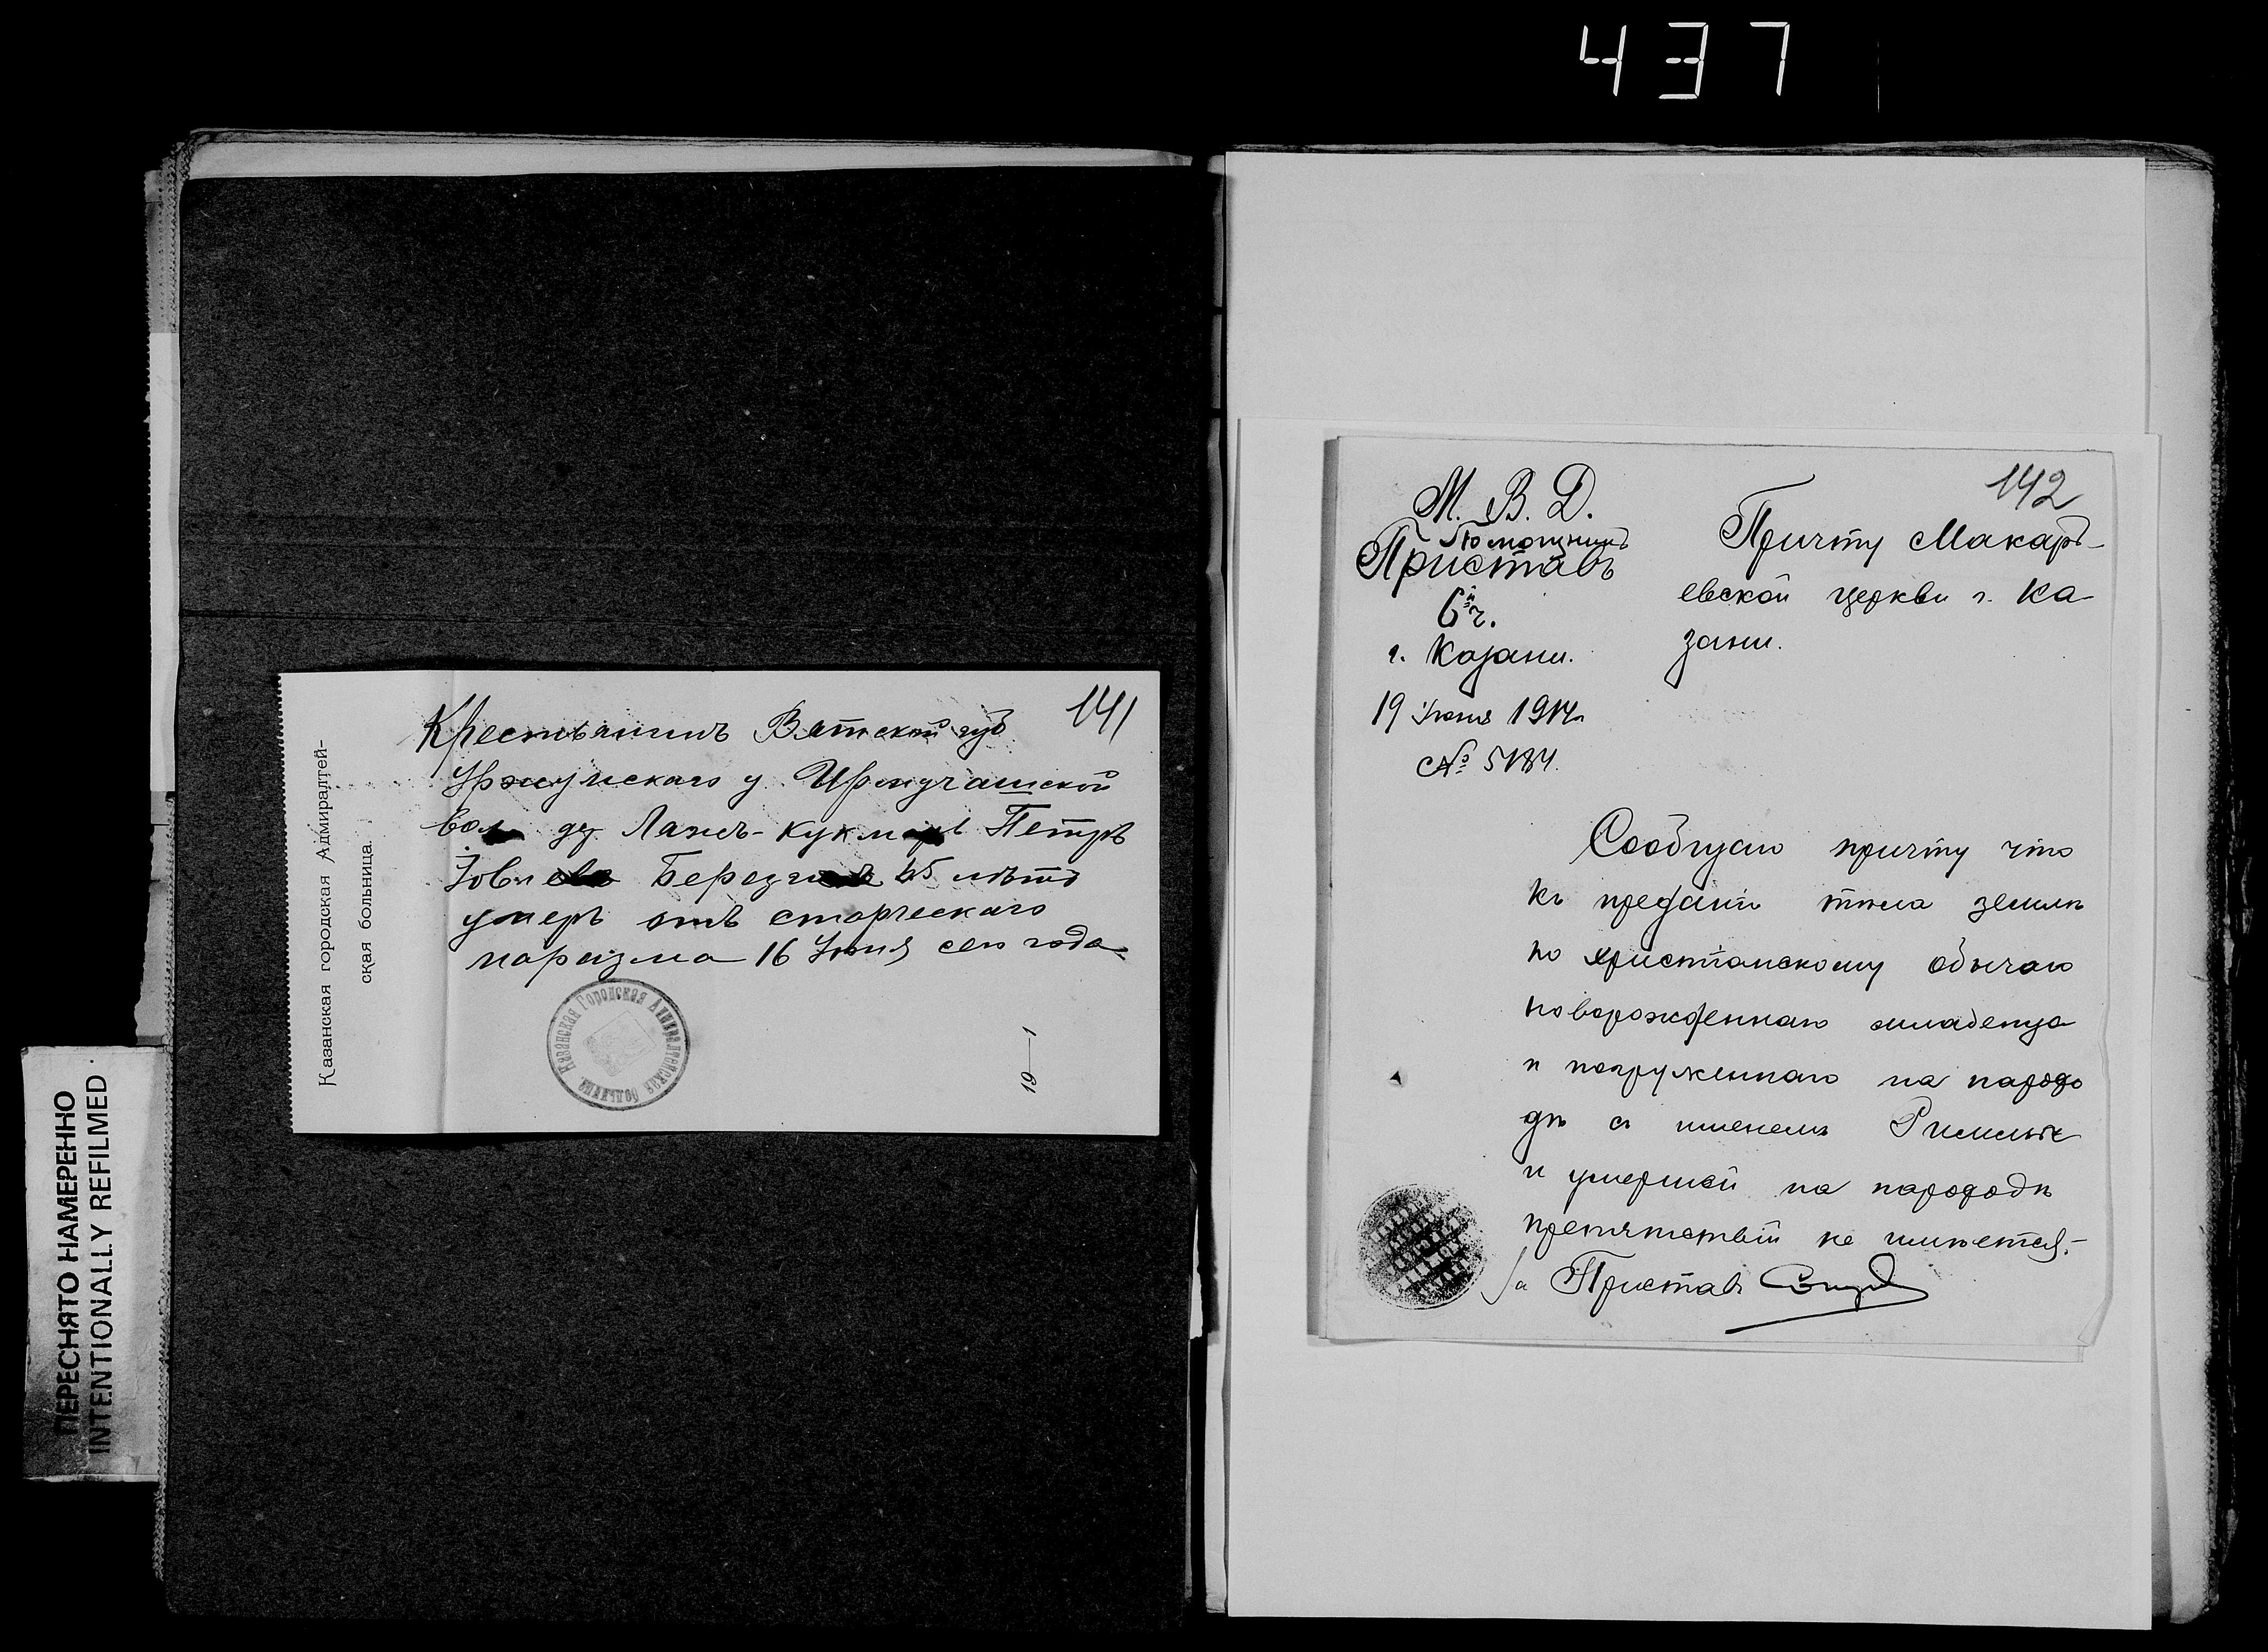 437
ПЕРЕСНЯТО НАМЕРЕННО
INTENTIONALLY REFILMED
Казанская городская Адмиралтей-
ская больница.
141
Крестьянинъ Вятской губ
Уржумскаго у.
вол. дер Лажъ-Кукмарь Петръ
Іовлевъ 45 лѣтъ
умеръ отъ старческаго
маразма 16 Іюня сего года
Казанская Городская Адмиралтейская больница
19—1
142
М. В. Д.
Помощникъ
Приставъ
6й ч.
г. Казани.
19 Іюня 1914 г.
№ 5184.
Причту Макарь-
евской церкви г. Ка-
зани.
Сообщаю причту что
къ преданію тѣла землѣ
по христіанскому обычаю
новорожденнаго младенца
и погруженнаго на парохо
дѣ съ именемъ Риммы
и умершей на пароходѣ
препятствій не имѣется.-
За Приставъ